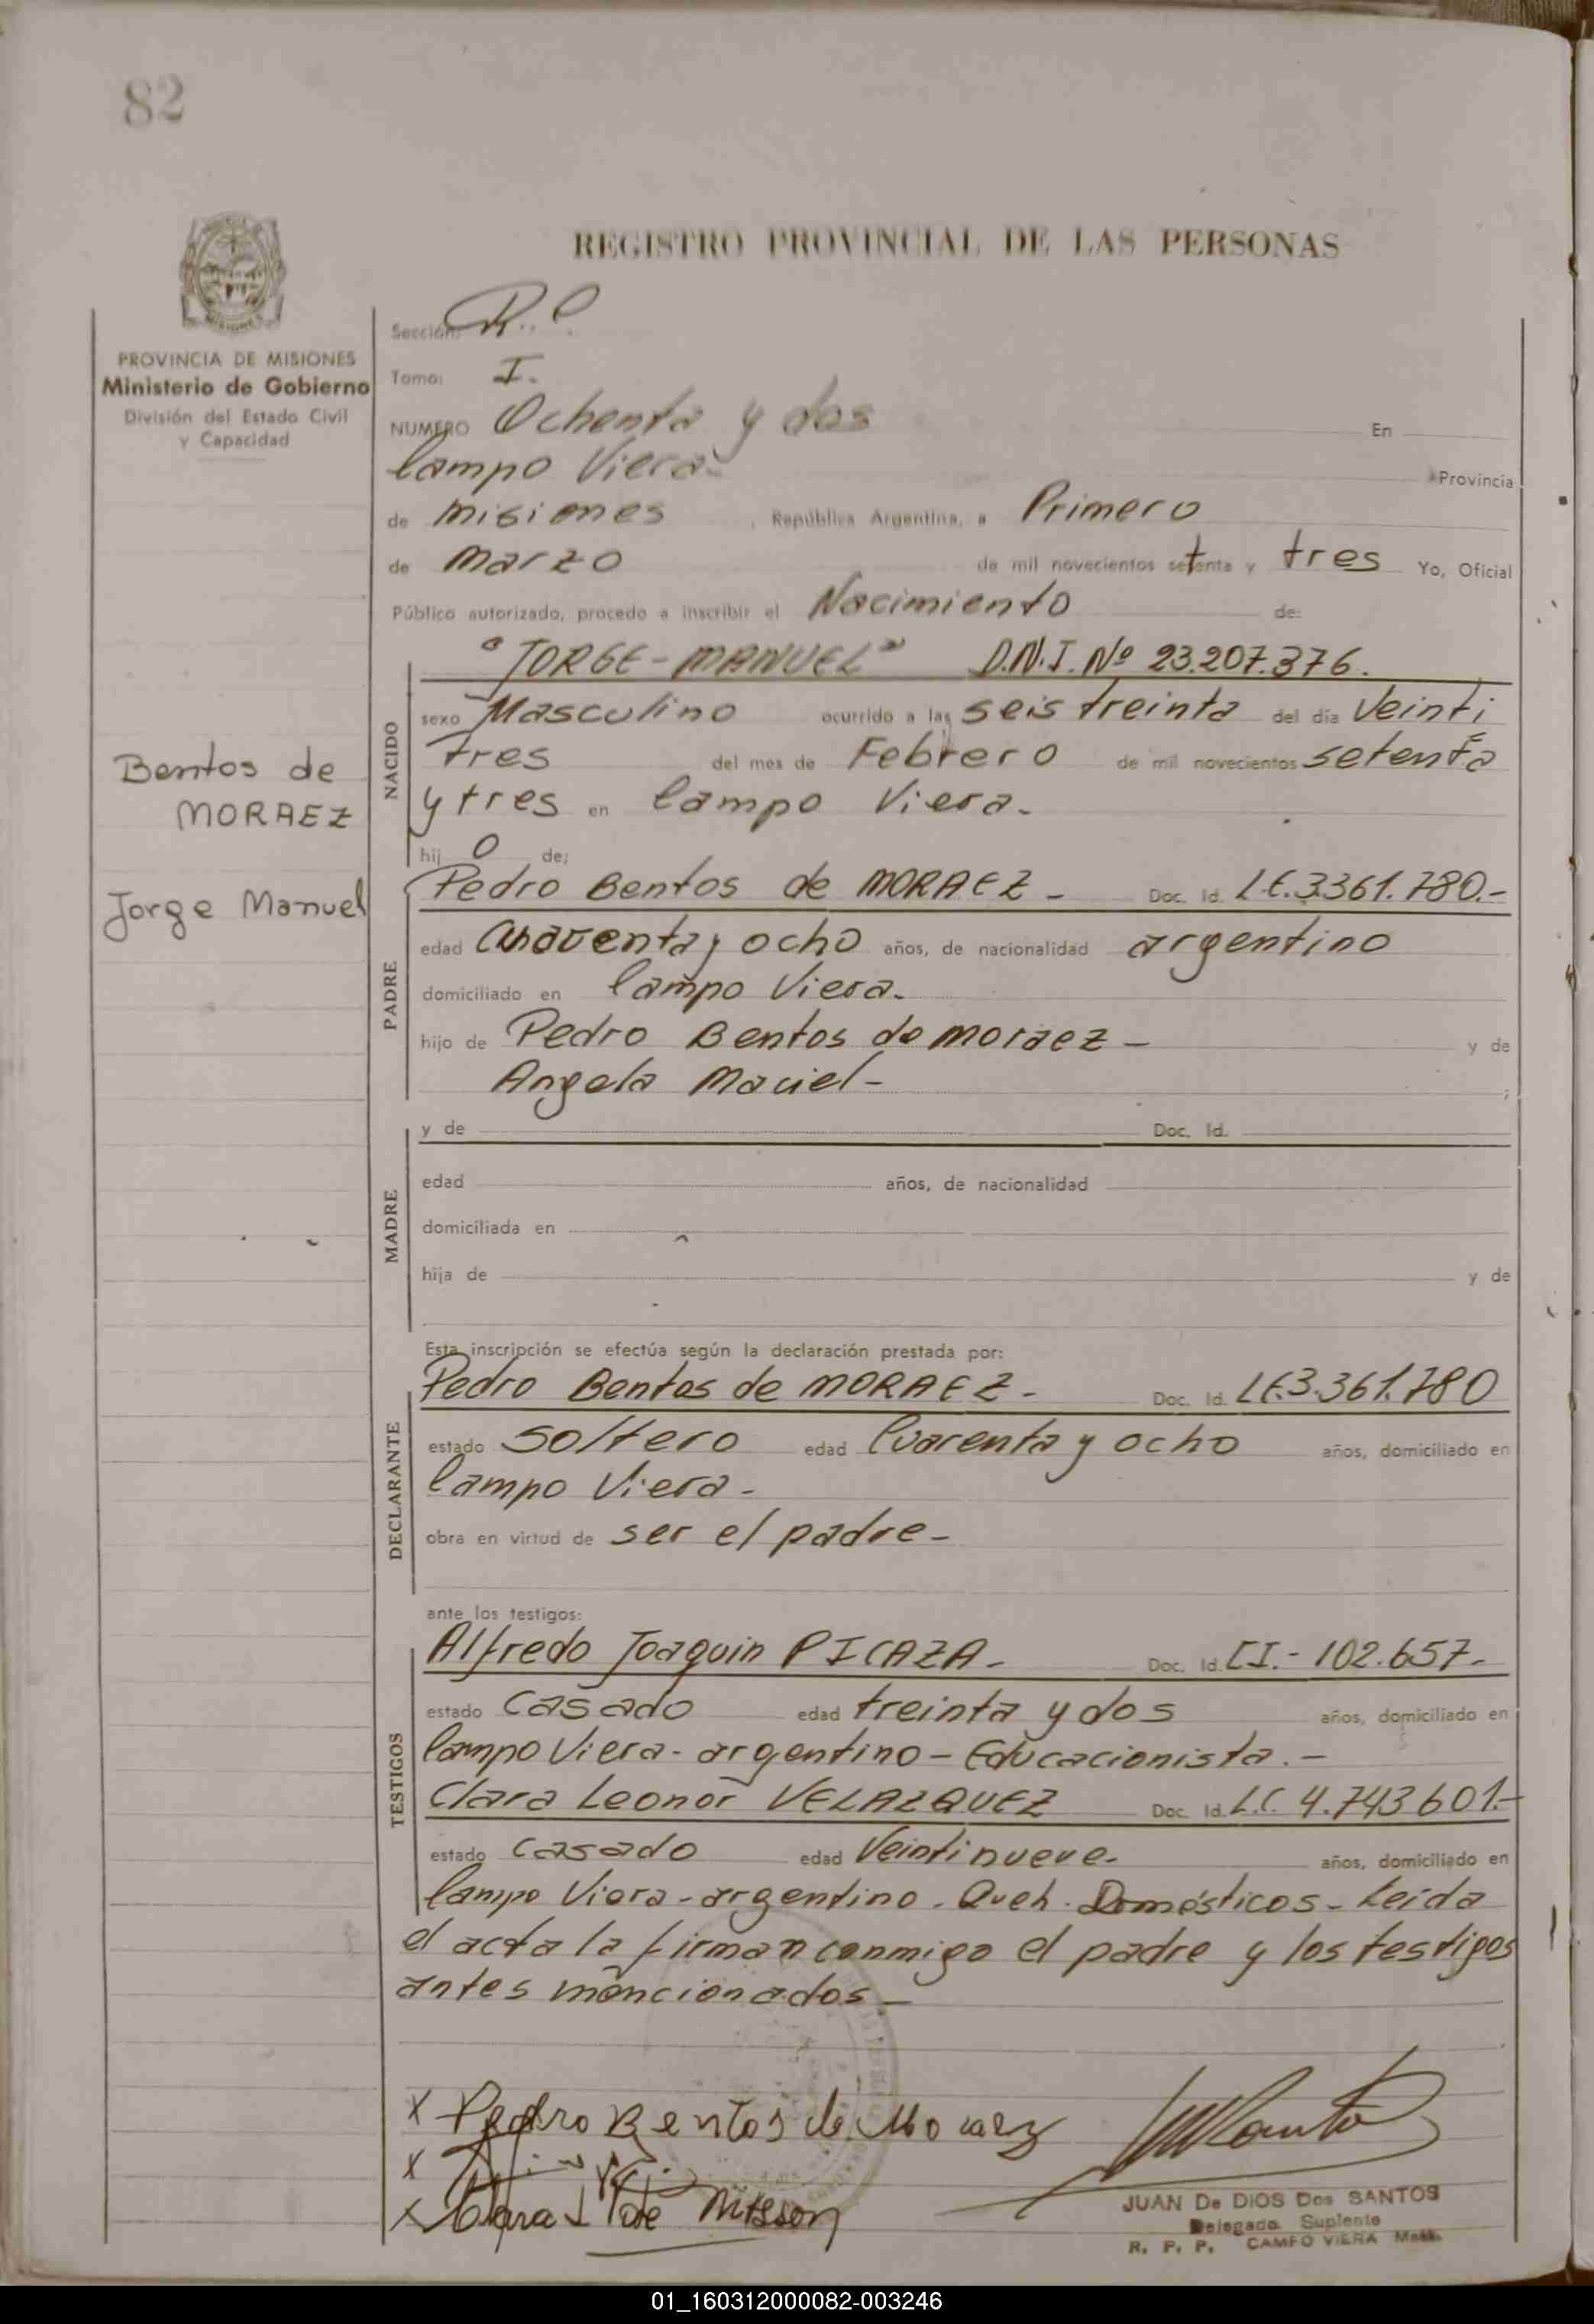 82
REGISTRO PROVINCIAL DE LAS PERSONAS
MISIONES
PROVINCIA DE MISIONES
Ministerio de Gobierno
División del Estado Civil
y Capacidad
Bentos de
MORAEZ
Jorge Manuel
Sección: R.C.
Tomo: I.
NUMERO Ochenta y dos En
Campo Viera Provincia
de Misiones, República Argentina, a Primero
de Marzo de mil novecientos setenta y tres Yo, Oficial
Público autorizado, procedo a inscribir el Nacimiento de:
NACIDO
"JORGE-MANUEL" D.N.I. Nº 23.207.376.
sexo Masculino ocurrido a las seis treinta del día Veinti
tres del mes de Febrero de mil novecientos setenta
y tres en Campo Viera.
hij o de;
PADRE
Pedro Bentos de MORAEZ - Doc. Id. L.E. 3.361.780.-
edad Cuarenta y ocho años, de nacionalidad argentino
domiciliado en Campo Viera.
hijo de Pedro Bentos de Moraez - y de
Angela Maciel - ;
MADRE
y de Doc. Id.
edad años, de nacionalidad
domiciliada en
hija de y de
Esta inscripción se efectúa según la declaración prestada por:
DECLARANTE
Pedro Bentos de MORAEZ - Doc. Id. L.E. 3.361.780
estado Soltero edad Cuarenta y ocho años, domiciliado en
Campo Viera -
obra en virtud de ser el padre -
ante los testigos:
TESTIGOS
Alfredo Joaquin PICAZA - Doc. Id. C.I. - 102.657.-
estado Casado edad treinta y dos años, domiciliado en
Campo Viera - argentino - Educacionista. -
Clara Leonor VELAZQUEZ Doc. Id. L.C. 4.743.601.-
estado Casado edad Veintinueve. años, domiciliado en
Campo Viera - argentino. Queh. Domésticos - Leida
el acta la firman conmigo el padre y los testigos
antes mencionados -
x Pedro Bentos de Moraez
x
x Clara L V de Nilsson
JUAN De DIOS Dos SANTOS
Delegado Suplente
R. P. P. CAMPO VIERA Mnes.
01_160312000082-003246